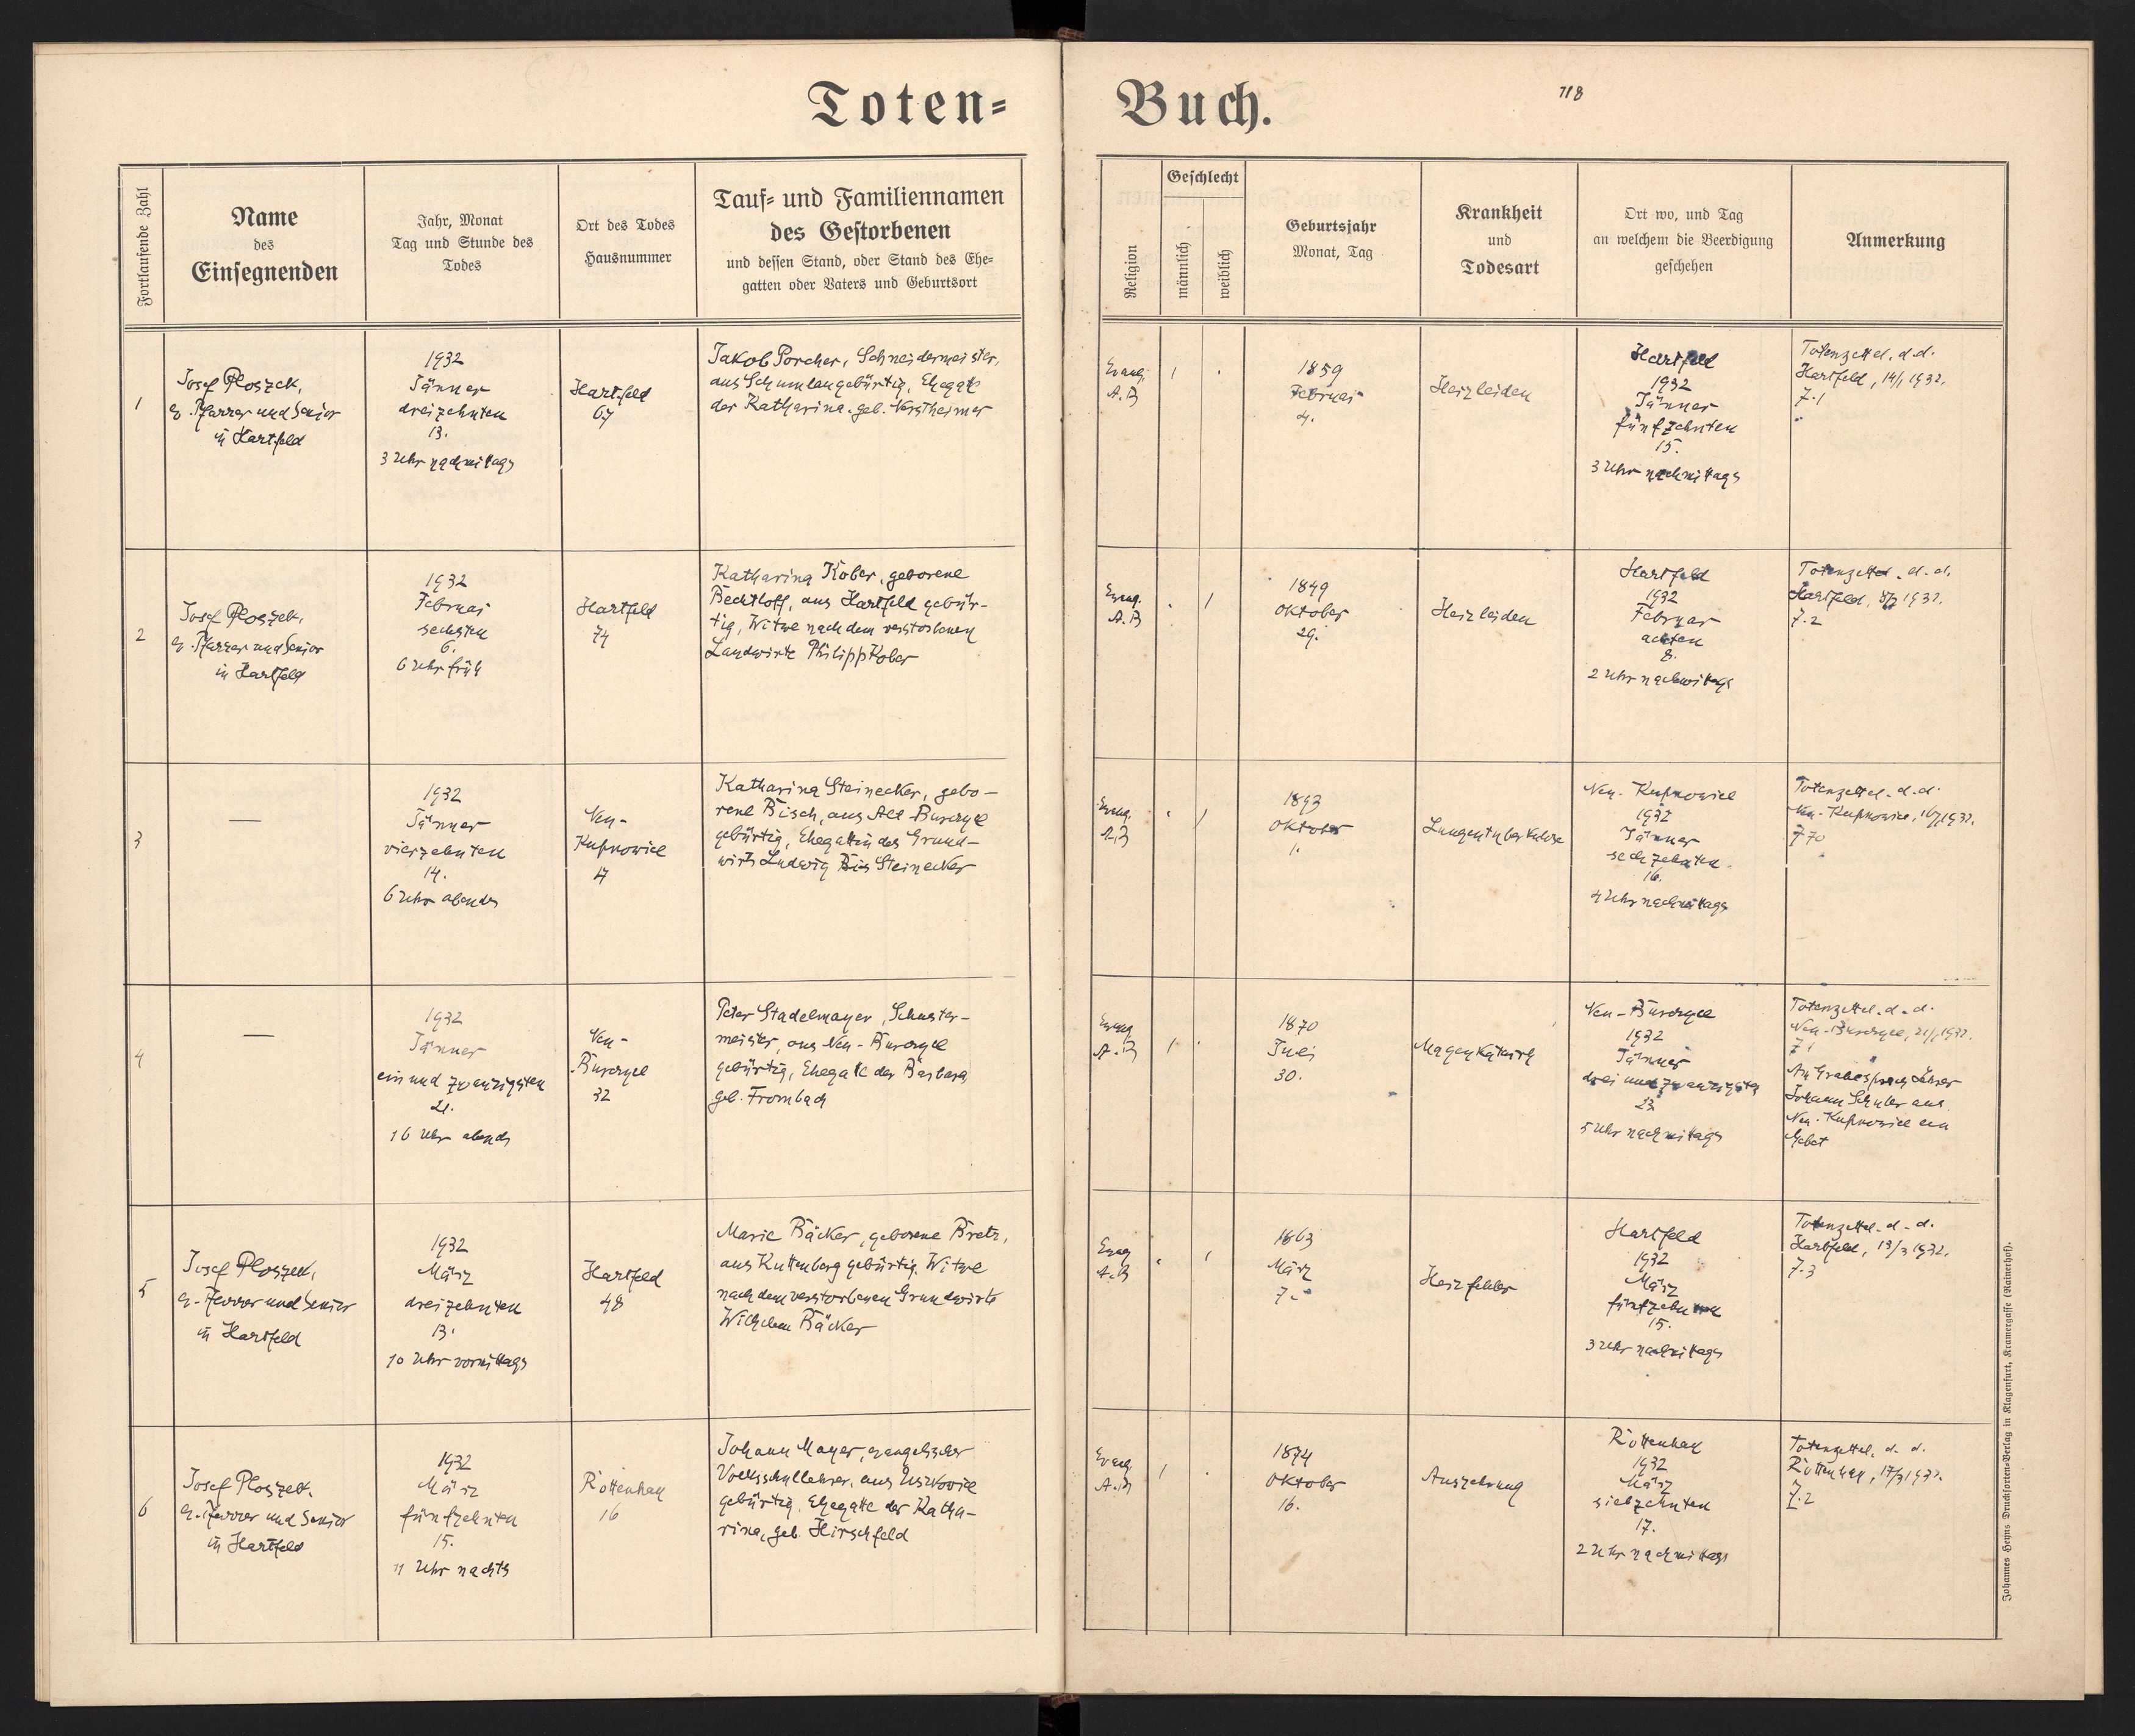 Toten=
Buch.
718
Fortlaufende Zahl
Name
des
Einsegnenden
Jahr, Monat
Tag und Stunde des
Todes
Ort des Todes
Hausnummer
Tauf= und Familiennamen
des Gestorbenen
und dessen Stand, oder Stand des Ehe=
gatten oder Vaters und Geburtsort
Religion
Geschlecht
männlich
weiblich
Geburtsjahr
Monat, Tag
Krankheit
und
Todesart
Ort wo, und Tag
an welchem die Beerdigung
geschehen
Anmerkung
1
Josef Ploszek,
ev. Pfarrer und Senior
in Hartfeld
1932
Jänner
dreizehnten
13.
3 Uhr nachmittags
Hartfeld
67
Jakob Porcher, Schneidermeister,
aus Schumlau gebürtig, Ehegatte
der Katharina geb.
Evang.
A.B
1
1859
Februar
4.
Herzleiden
Hartfeld
1932
Jänner
fünfzehnten
15.
3 Uhr nachmittags
Totenzettel. d.d.
Hartfeld, 14/1 1932.
Z.1
2
Josef Ploszek,
ev. Pfarrer und Senior
in Hartfeld
1932
Februar
sechsten
6.
6 Uhr früh
Hartfeld
74
Katharina Kober, geborene
Bechtloff, aus Hartfeld gebür-
tig, Witwe nach dem verstorbenen
Landwirte Philipp Kober
Evang.
A.B
1
1849
Oktober
29.
Herzleiden
Hartfeld
1932
Februar
achten
8.
2 Uhr nachmittags
Totenzettel. d.d.
Hartfeld, 1932.
Z.2
3
—
1932
Jänner
vierzehnten
14.
6 Uhr abends
Neu-
Kupnowice
17
Katharina Steinecker, gebo-
rene Bisch, aus Alt Burczyce
gebürtig, Ehegattin des Grund-
wirts Ludwig Steinecker
Evang.
A.B
1
1893
Oktober
1.
Lungentuberkulose
Neu-Kupnowice
1932
Jänner
sechzehnten
16.
4 Uhr nachmittags
Totenzettel. d.d.
Neu-Kupnowice, 1932.
4
—
1932
Jänner
einundzwanzigsten
21.
Uhr abends
Neu-
Burczyce
32
Peter Stadelmayer, Schuster-
meister, aus Neu-Burczyce
gebürtig, Ehegatte der Barbara,
geb. Frombach
Evang
A.B
1
1870
Juli
30.
Magenkatarrh
Neu-Burczyce
1932
Jänner
dreiundzwanzigsten
23.
5 Uhr nachmittags
Totenzettel. d.d.
Neu-Burczyce, 21/1 1932.
Z.1
Am Grabe sprach Lehrer
Johann Schuler aus
Neu-Kupnowice ein
Gebet
5
Josef Ploszek,
ev. Pfarrer und Senior
in Hartfeld
1932
März
dreizehnten
13.
10 Uhr vormittags
Hartfeld
48
Marie Bäcker, geborene Bretz,
aus Kuttenberg gebürtig, Witwe
nach dem verstorbenen Grundwirte
Wilhelm Bäcker
Evang
A.B
1
1863
März
7.
Herzfehler
Hartfeld
1932
März
fünfzehnten
15.
3 Uhr nachmittags
Totenzettel. d.d.
Hartfeld, 13/3 1932.
Z.3
6
Josef Ploszek.
ev. Pfarrer und Senior
in Hartfeld
1932
März
fünfzehnten
15.
11 Uhr nachts
Rottenhan
16
Johann Mayer, evangelischer
Volksschullehrer, aus Uszkowice
gebürtig, Ehegatte der Katha-
rina, geb. Hirschfeld
Evang
A.B
1
1874
Oktober
16.
Auszehrung
Rottenhan
1932
März
siebzehnten
17.
2 Uhr nachmittags
Totenzettel. d.d.
Rottenhan, 17/3 1932.
Z.2
Johannes Heyns Drucksorten=Verlag in Klagenfurt, Kramergasse (Rainerhof).